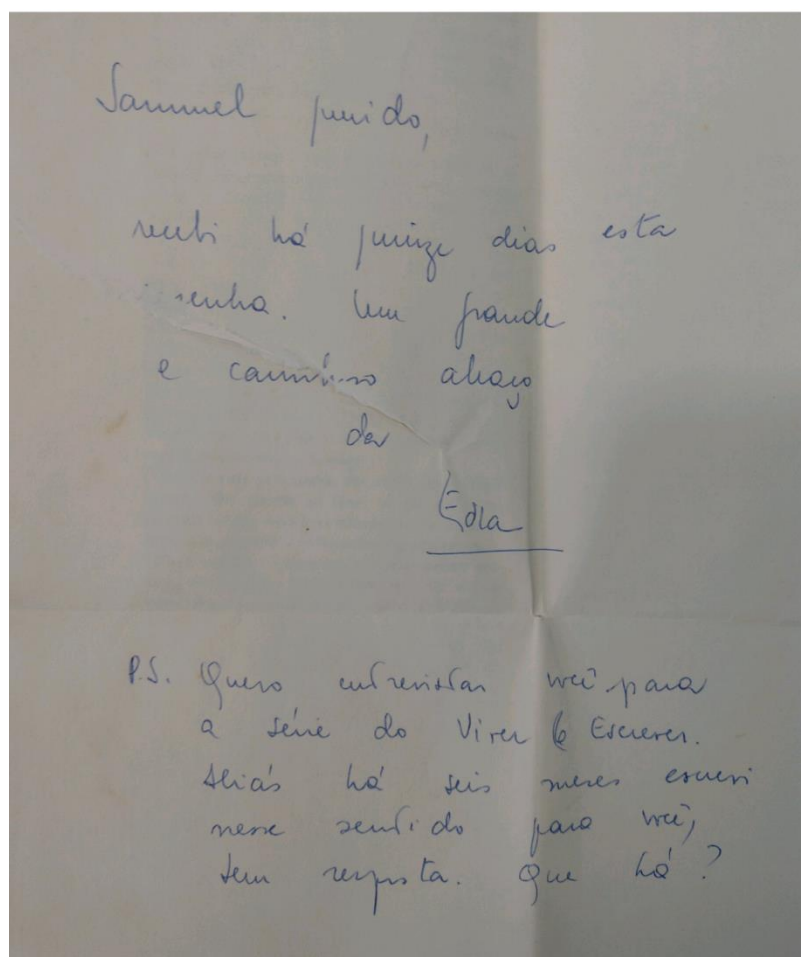 Sammuel querido,
recebi há quinze dias esta
resenha. Um grande
e carinhoso abraço
da
Edla
P.S. Quero entrevistar você para
a série do Viver & Escrever.
Aliás há seis meses escrevi
nesse sentido para você,
sem resposta. Que há?